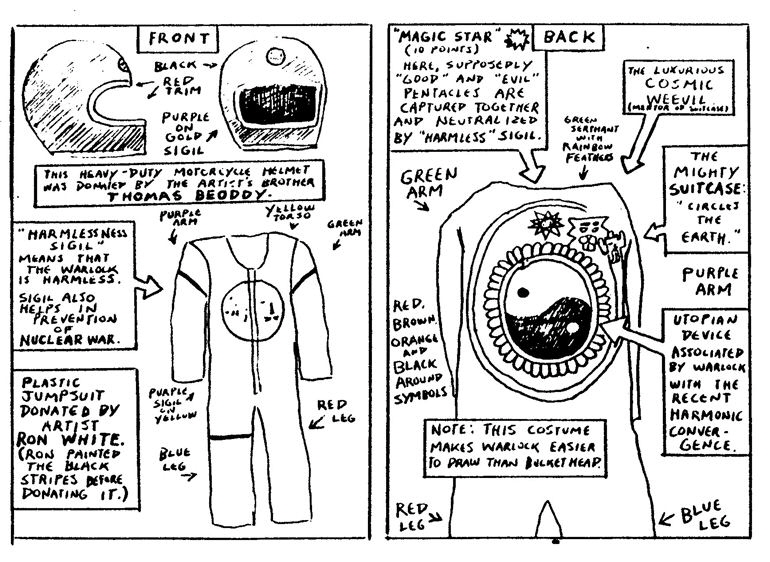 FRONT
BLACK
RED
TRIM
PURPLE
ON
GOLD
SIGIL
THIS HEAVY-DUTY MOTORCYCLE HELMET
WAS DONATED BY THE ARTIST'S BROTHER
THOMAS BEODDY.
PURPLE
ARM
YELLOW
TORSO
GREEN
ARM
"HARMLESSNESS
SIGIL"
MEANS THAT
THE WARLOCK
IS HARMLESS.
SIGIL ALSO
HELPS IN
PREVENTION
OF
NUCLEAR WAR.
PLASTIC
JUMPSUIT
DONATED BY
ARTIST
RON WHITE.
(RON PAINTED
THE BLACK
STRIPES BEFORE
DONATING IT.)
PURPLE
SIGIL
ON
YELLOW
BLUE
LEG
RED
LEG
BACK
"MAGIC STAR"
(10 POINTS)
HERE, SUPPOSEDLY
"GOOD" AND "EVIL"
PENTACLES ARE
CAPTURED TOGETHER
AND NEUTRALIZED
BY "HARMLESS" SIGIL.
GREEN
SERPHANT
WITH
RAINBOW
FEATHERS
THE LUXURIOUS
COSMIC
WEEVIL
(MENTOR OF SUITCASE)
GREEN
ARM
THE
MIGHTY
SUITCASE:
"CIRCLES
THE
EARTH."
PURPLE
ARM
RED,
BROWN
ORANGE
AND
BLACK
AROUND
SYMBOLS
UTOPIAN
DEVICE
ASSOCIATED
BY WARLOCK
WITH THE
RECENT
HARMONIC
CONVER-
GENCE.
NOTE: THIS COSTUME
MAKES WARLOCK EASIER
TO DRAW THAN BUCKETHEAD.
RED
LEG
BLUE
LEG